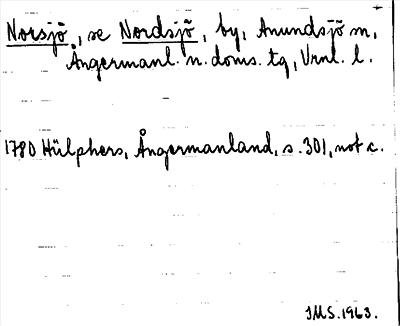 Norsjö, se Nordsjö, by, Anundsjö sn,
Ångermanl. n. doms. tg, Vrnl. l.
1780 Hülphers, Ångermanland, s. 301, not c.
IMS. 1963.